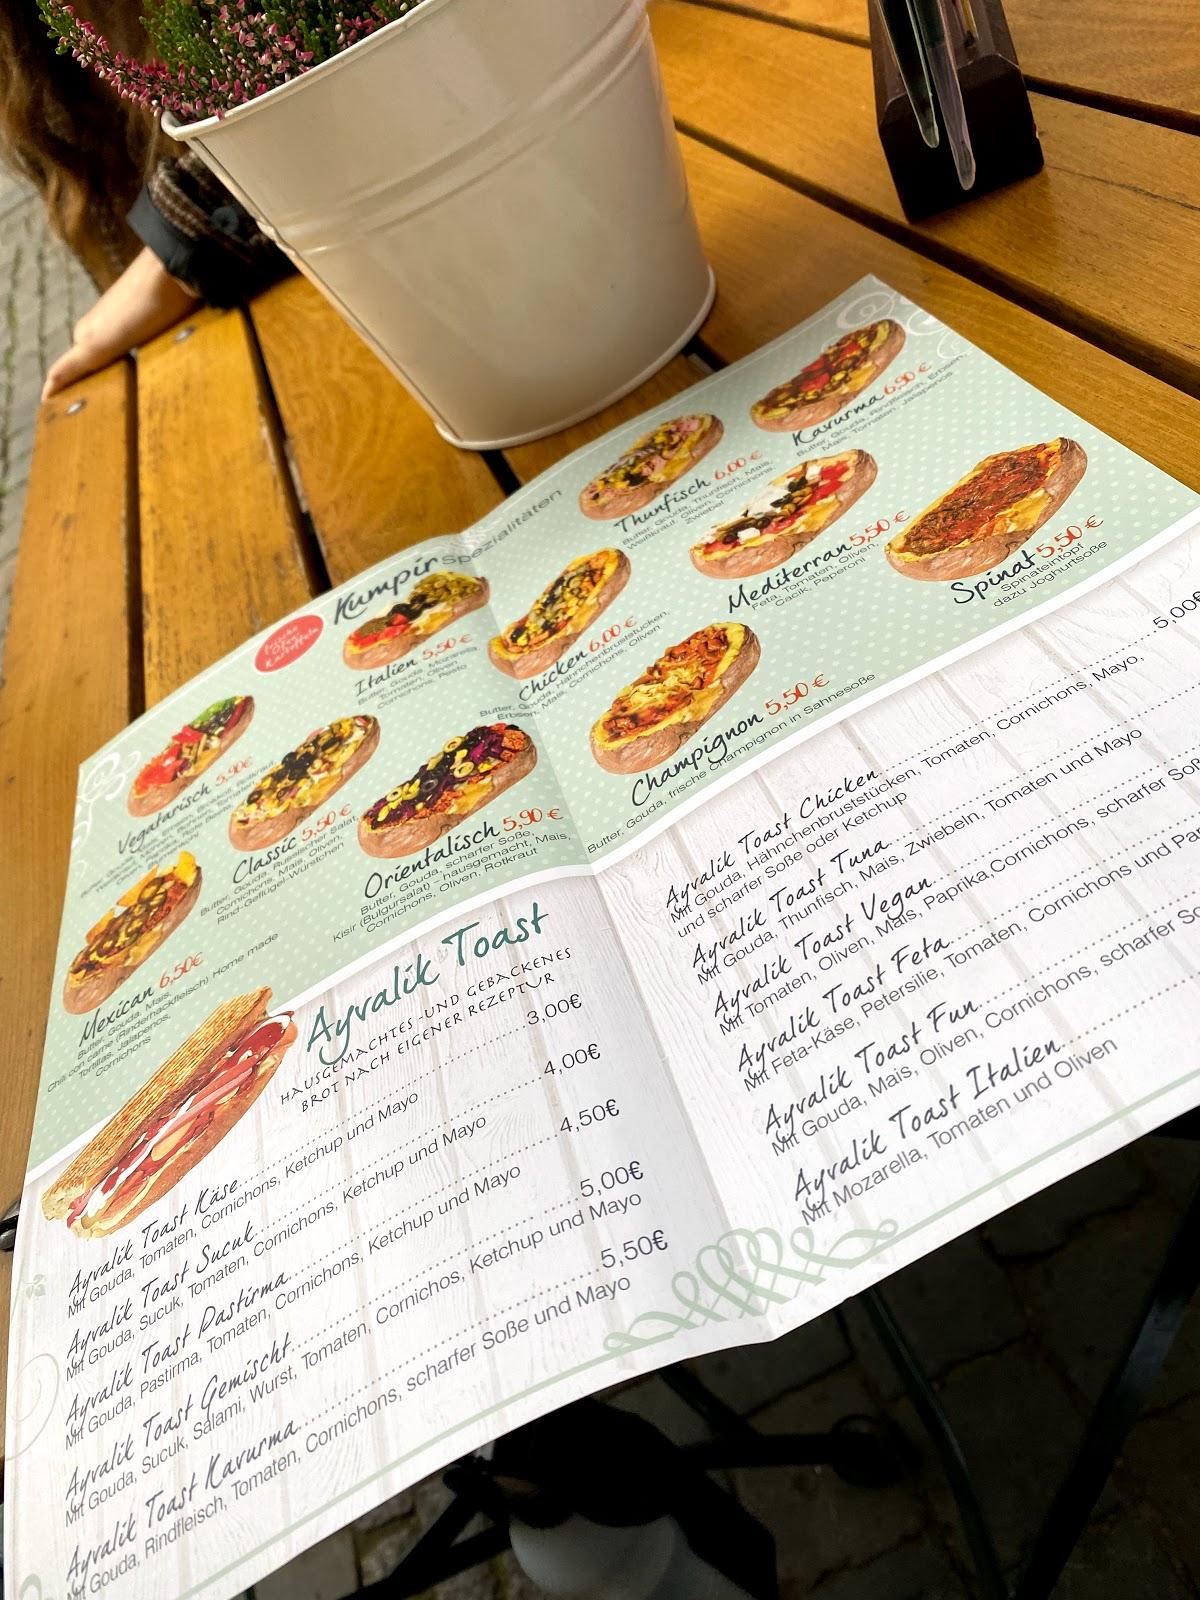 Kumpir Spezialitäten
frische
Ofen
Kartoffeln
Vegatarisch 5,90€
Classic 5,50 €
Butter, Gouda, Russischer Salat,
Cornichons, Mais, Oliven,
Rind-Geflügel-Würstchen
Italien 5,50 €
Butter, Gouda, Mozarella,
Tomaten, Oliven
Cornichons, Pesto
Mexican 6,50€
Butter, Gouda, Mais,
Chili con carne (Rinderhackfleisch) Home made
Tortillas, Jalapenos,
Cornichons
Orientalisch 5,90 €
Butter, Gouda, scharfer Soße,
Kisir (Bulgursalat) hausgemacht, Mais,
Cornichons, Oliven, Rotkraut
Chicken 6,00 €
Butter, Gouda, Hähnchenbruststücken,
Erbsen, Mais, Cornichons, Oliven
Thunfisch 6,00 €
Butter, Gouda, Thunfisch, Mais,
Weißkraut, Oliven, Cornichons,
Zwiebel
Kavurma 6,90 €
Butter, Gouda, Rindfleisch, Erbsen,
Mais, Tomaten, Jalapenos
Champignon 5,50 €
Butter, Gouda, frische Champignon in Sahnesoße
Mediterran 5,50 €
Feta, Tomaten, Oliven,
Cacik, Peperoni
Spinat 5,50 €
Spinateintopf
dazu Joghurtsoße
Ayvalik Toast
HAUSGEMACHTES -UND GEBACKENES
BROT NACH EIGENER REZEPTUR
Ayvalik Toast Käse 3,00€
Mit Gouda, Tomaten, Cornichons, Ketchup und Mayo
Ayvalik Toast Sucuk 4,00€
Mit Gouda, Sucuk, Tomaten, Cornichons, Ketchup und Mayo
Ayvalik Toast Pastirma 4,50€
Mit Gouda, Pastirma, Tomaten, Cornichons, Ketchup und Mayo
Ayvalik Toast Gemischt 5,00€
Mit Gouda, Sucuk, Salami, Wurst, Tomaten, Cornichos, Ketchup und Mayo
Ayvalik Toast Kavurma 5,50€
Mit Gouda, Rindfleisch, Tomaten, Cornichons, scharfer Soße und Mayo
Ayvalik Toast Chicken 5,00€
Mit Gouda, Hähnchenbruststücken, Tomaten, Cornichons, Mayo,
und scharfer Soße oder Ketchup
Ayvalik Toast Tuna
Mit Gouda, Thunfisch, Mais, Zwiebeln, Tomaten und Mayo
Ayvalik Toast Vegan
Mit Tomaten, Oliven, Mais, Paprika,Cornichons, scharfer Soß
Ayvalik Toast Feta
Mit Feta-Käse, Petersilie, Tomaten, Cornichons und Pa
Ayvalik Toast Fun
Mit Gouda, Mais, Oliven, Cornichons, scharfer So
Ayvalik Toast Italien
Mit Mozarella, Tomaten und Oliven